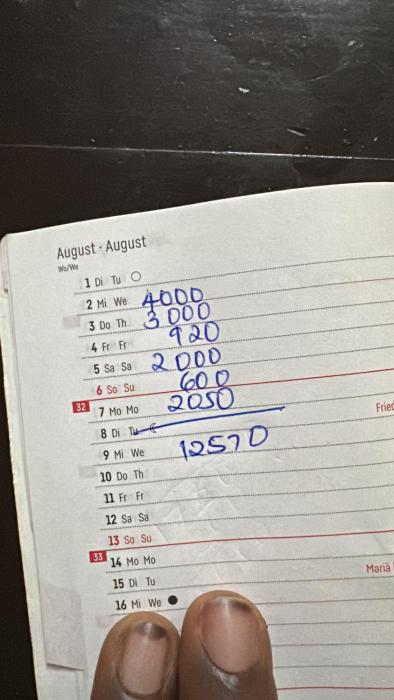 August · August
Wo/We
1 Di Tu
2 Mi We 4000
3 Do Th 3000
4 Fr Fr 920
5 Sa Sa 2000
6 So Su 600
32 7 Mo Mo 2050
8 Di Tu
9 Mi We 12570
10 Do Th
11 Fr Fr
12 Sa Sa
13 So Su
33 14 Mo Mo
15 Di Tu
16 Mi We
Fried
Mariä